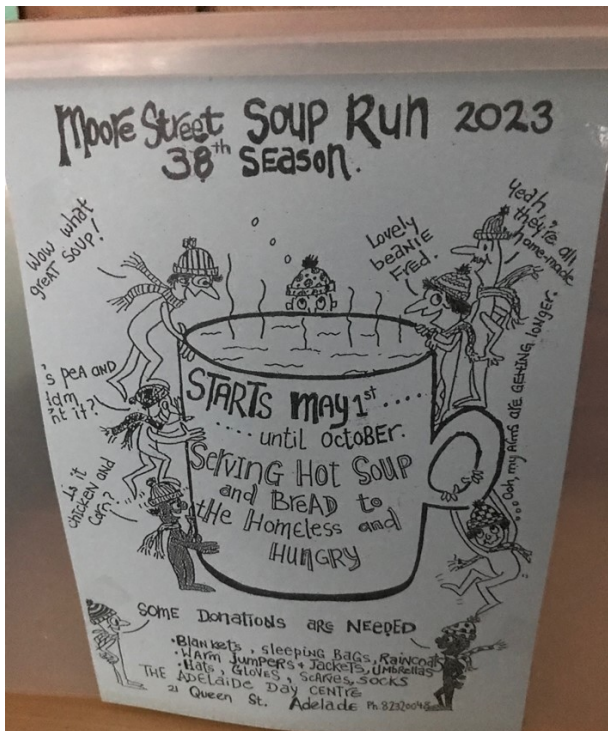 Moore Street Soup Run 2023
38th Season.
Wow what
great soup!
Lovely
beanie
Fred.
Yeah,
they're all
home-made.
's pea and
't it?
Is it
chicken and
corn?
Starts May 1st .....
..... until October.
Serving Hot Soup
and Bread to
the Homeless and
Hungry
...Ooh, my arms are getting longer.
Some Donations are Needed
•Blankets, sleeping Bags, Raincoats
•Warm Jumpers + Jackets, Umbrellas
•Hats, Gloves, Scarves, Socks
The Adelaide Day Centre
21 Queen St. Adelade Ph. 82320048